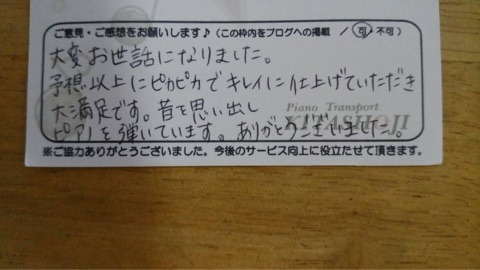 ご意見・ご感想をお願いします♪（この枠内をブログへの掲載 / 可・不可）
大変お世話になりました。
予想以上にピカピカでキレイに仕上げていただき
大満足です。昔を思い出し
Piano Transport
KITASHOJI
ピアノを弾いています。ありがとうございました。
※ご協力ありがとうございました。今後のサービス向上に役立たせて頂きます。